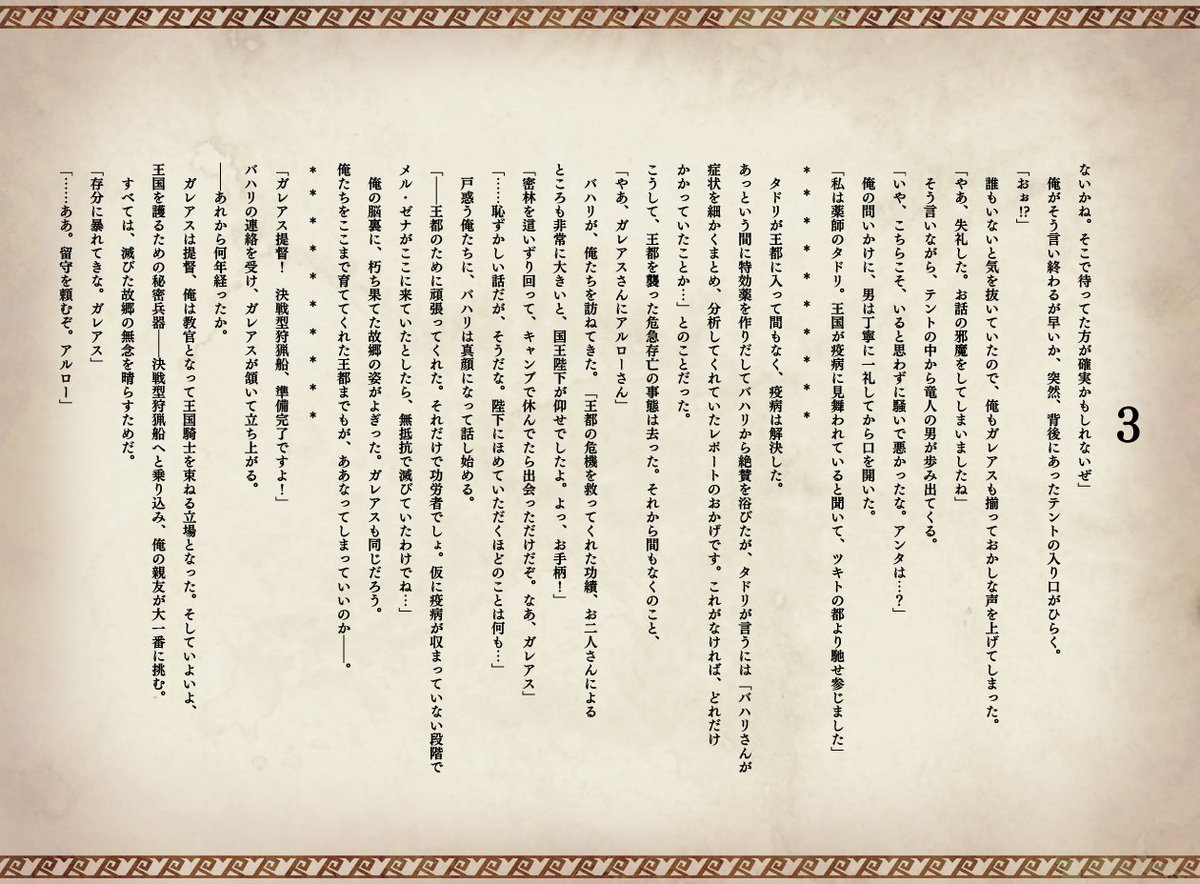 3
ないかね。そこで待ってた方が確実かもしれないぜ」
俺がそう言い終わるが早いか、突然、背後にあったテントの入り口がひらく。
「おぉ!?」
誰もいないと気を抜いていたので、俺もガレアスも揃っておかしな声を上げてしまった。
「やあ、失礼した。お話の邪魔をしてしまいましたね」
そう言いながら、テントの中から竜人の男が歩み出てくる。
「いや、こちらこそ、いると思わずに騒いで悪かったな。アンタは…?」
俺の問いかけに、男は丁寧に一礼してから口を開いた。
「私は薬師のタドリ。王国が疫病に見舞われていると聞いて、ツキトの都より馳せ参じました」
* * * * * * * * *
タドリが王都に入って間もなく、疫病は解決した。
あっという間に特効薬を作りだしてバハリから絶賛を浴びたが、タドリが言うには「バハリさんが
症状を細かくまとめ、分析してくれていたレポートのおかげです。これがなければ、どれだけ
かかっていたことか…」とのことだった。
こうして、王都を襲った危急存亡の事態は去った。それから間もなくのこと、
「やあ、ガレアスさんにアルローさん」
バハリが、俺たちを訪ねてきた。「王都の危機を救ってくれた功績、お二人さんによる
ところも非常に大きいと、国王陛下が仰せでしたよ。よっ、お手柄!」
「密林を這いずり回って、キャンプで休んでたら出会っただけだぞ。なあ、ガレアス」
「……恥ずかしい話だが、そうだな。陛下にほめていただくほどのことは何も…」
戸惑う俺たちに、バハリは真顔になって話し始める。
「――王都のために頑張ってくれた。それだけで功労者でしょ。仮に疫病が収まっていない段階で
メル・ゼナがここに来ていたとしたら、無抵抗で滅びていたわけでね…」
俺の脳裏に、朽ち果てた故郷の姿がよぎった。ガレアスも同じだろう。
俺たちをここまで育ててくれた王都までもが、ああなってしまっていいのか――。
* * * * * * * * *
「ガレアス提督! 決戦型狩猟船、準備完了ですよ!」
バハリの連絡を受け、ガレアスが頷いて立ち上がる。
――あれから何年経ったか。
ガレアスは提督、俺は教官となって王国騎士を束ねる立場となった。そしていよいよ、
王国を護るための秘密兵器――決戦型狩猟船へと乗り込み、俺の親友が大一番に挑む。
すべては、滅びた故郷の無念を晴らすためだ。
「存分に暴れてきな。ガレアス」
「……ああ。留守を頼むぞ。アルロー」